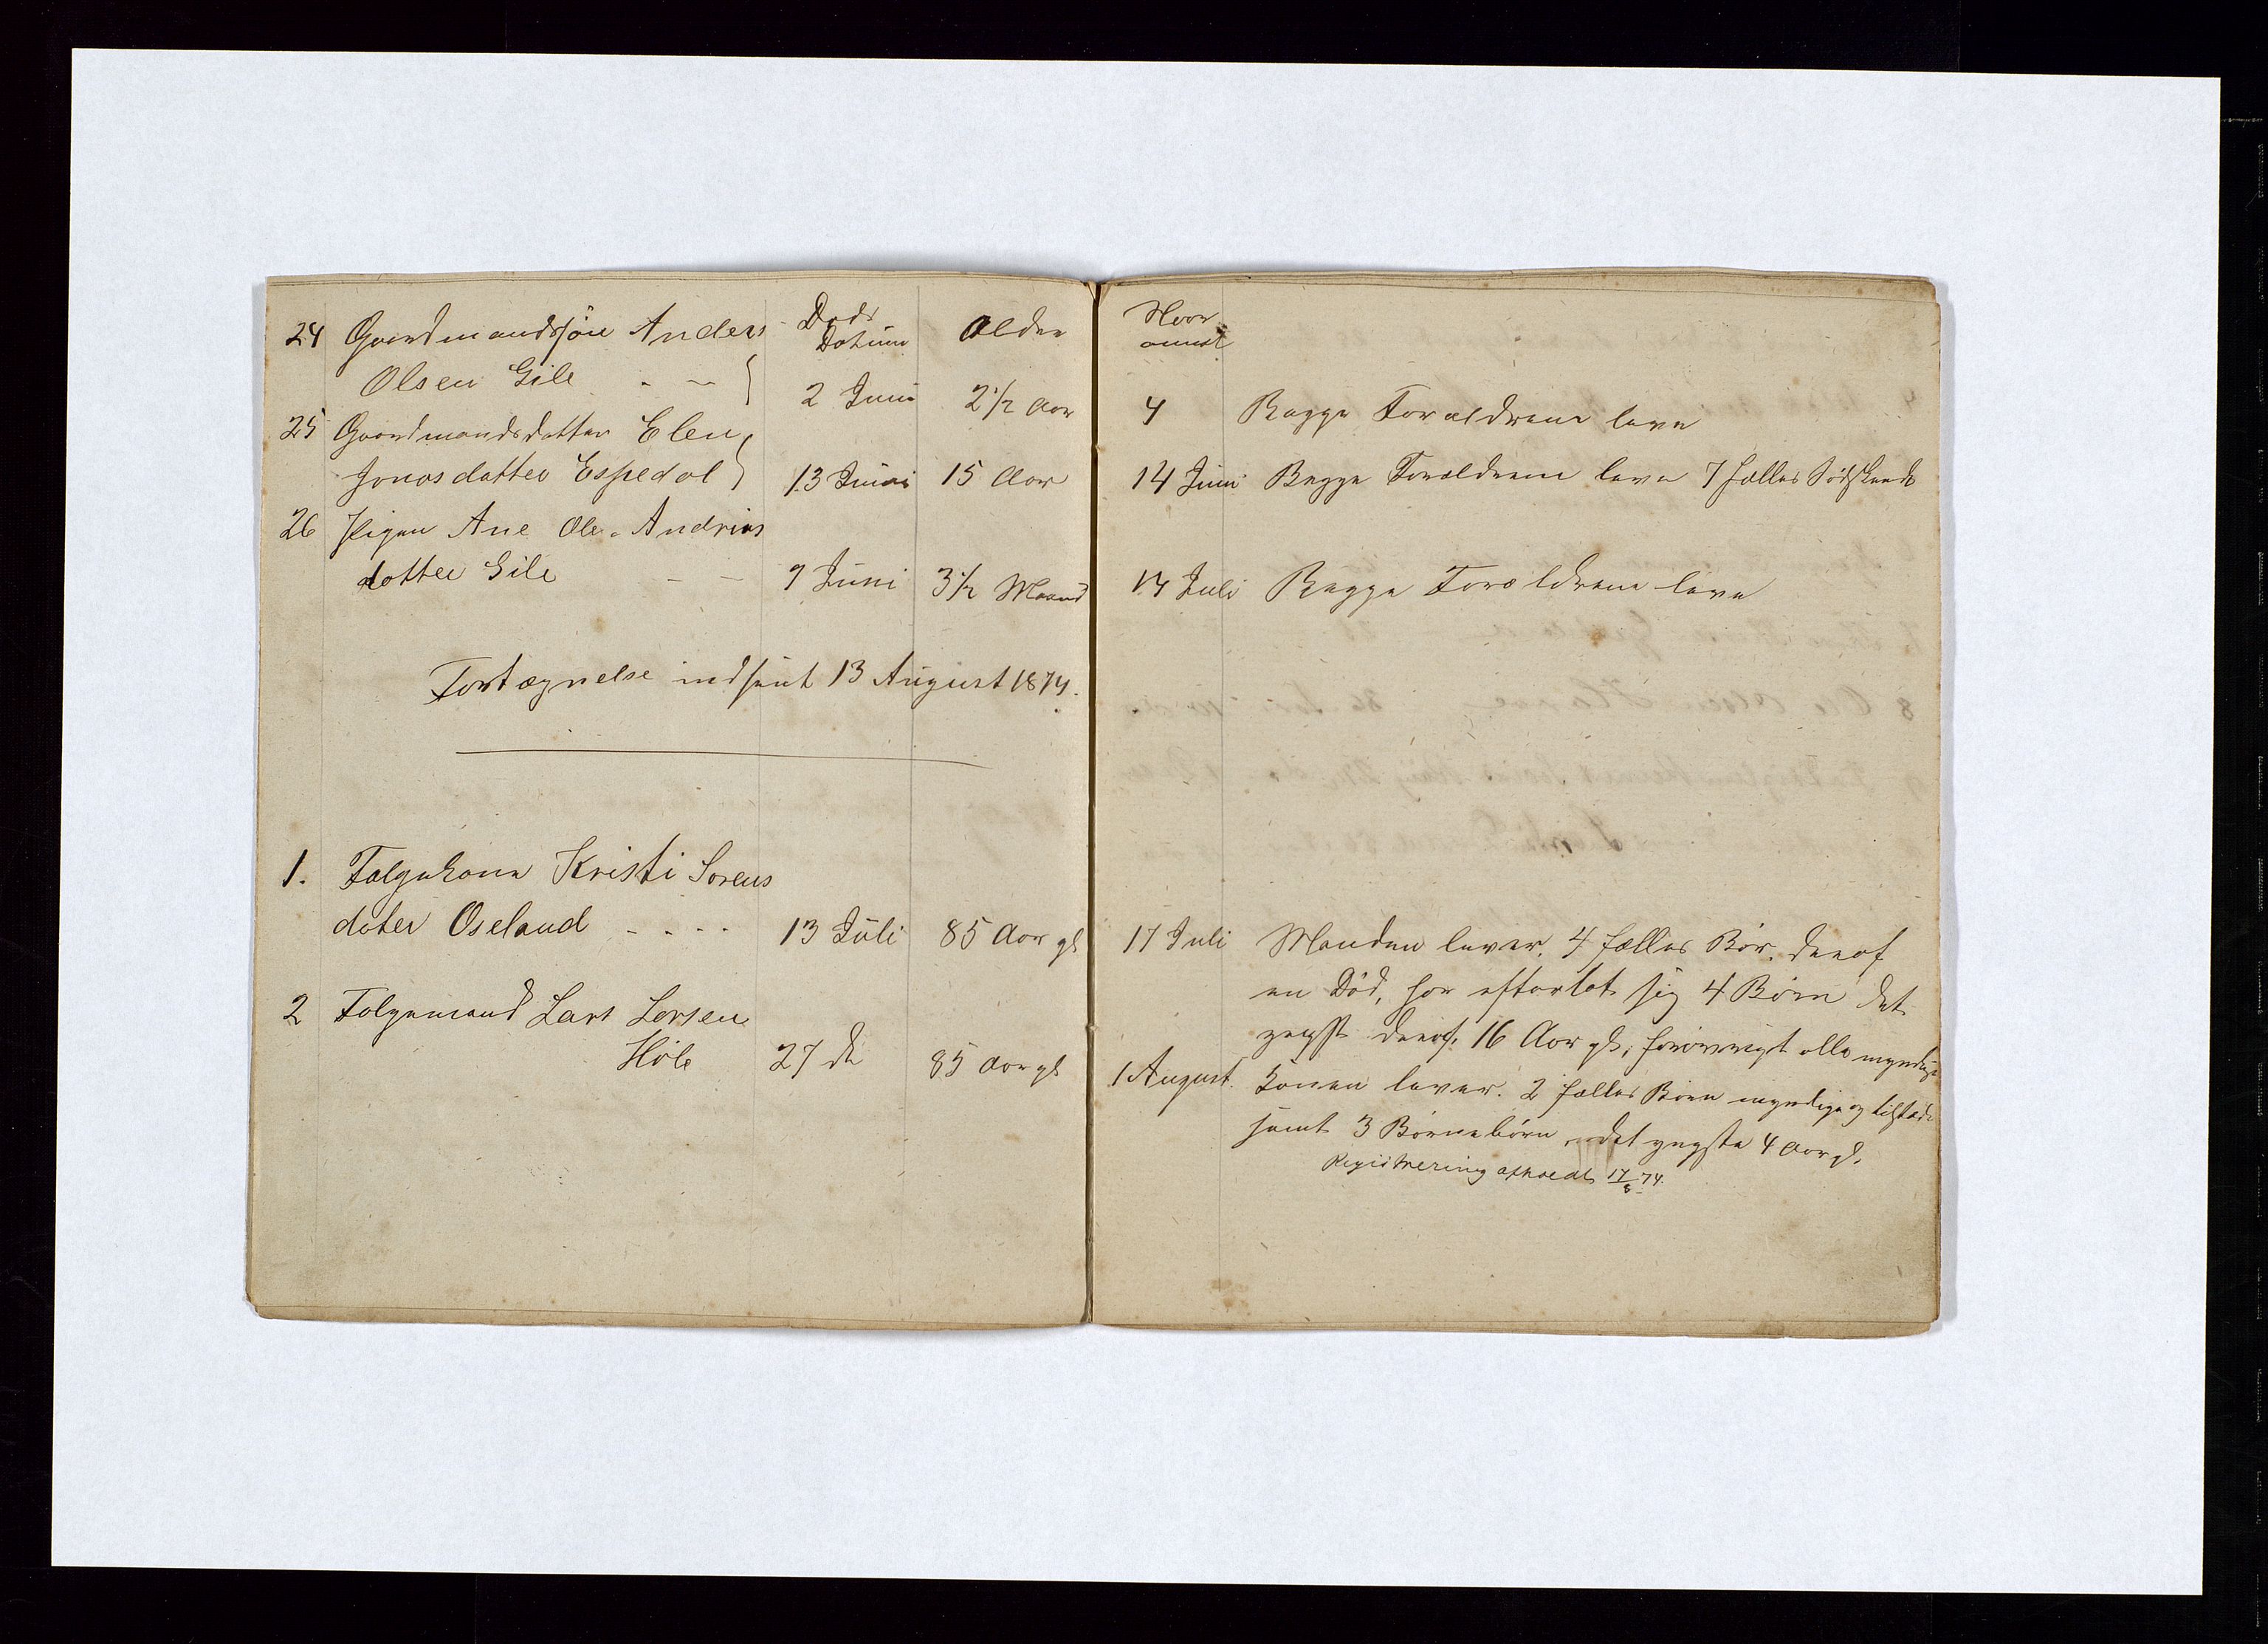 Døds Datum
Alder
24 Gaardmandssøn Anders
Olsen Gile - -
2 Juni 2 1/2 Aar
25 Gaardmandsdatter Elen
Jonasdatter Espedal
13 Juni 15 Aar
26 Pigen Ane Ole-Andrias
datter Gile - -
7 Juni 3 1/2 Maaned
Fortegnelse indsent 13 August 1874.
1. Folgekone Kristi Sorens
dater Oseland - - - -
13 Juli 85 Aar gl
2 Folgemand Lars Larsen
Høle 27 de 85 Aar gl
Naar
anmel
4 Begge Foraldrene leve
14 Juni Begge Foraldrene leve 7 fælles Sødskende
14 Juli Begge Foraldrene leve
17 Juli Manden lever. 4 fælles Bør. deraf
en Død, har efterlat sig 4 Børn det
yngste deraf. 16 Aar gl, forøvrigt alle myndige
1 August. Konen lever. 2 fælles Børn myndige og tilstæde
samt 3 Børnebørn, det yngste 4 Aar gl.
Registrering afholdt 17/8 74.